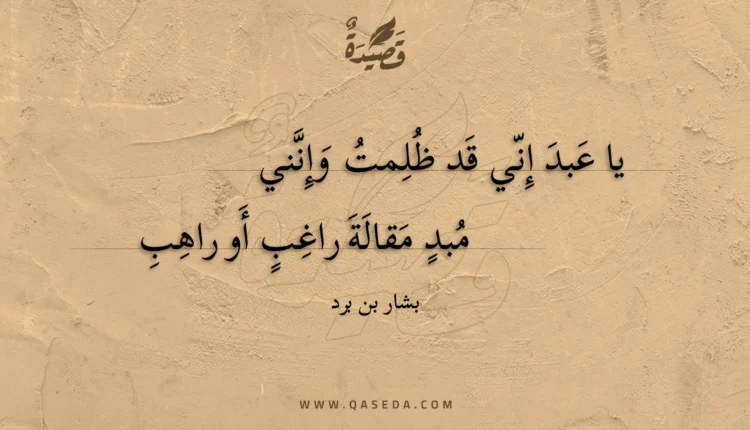 قَصِيدَةٌ
يا عَبدَ إِنّي قَد ظُلِمتُ وَإِنَّني
مُبدٍ مَقالَةَ راغِبٍ أَو راهِبِ
بشار بن برد
WWW.QASEDA.COM